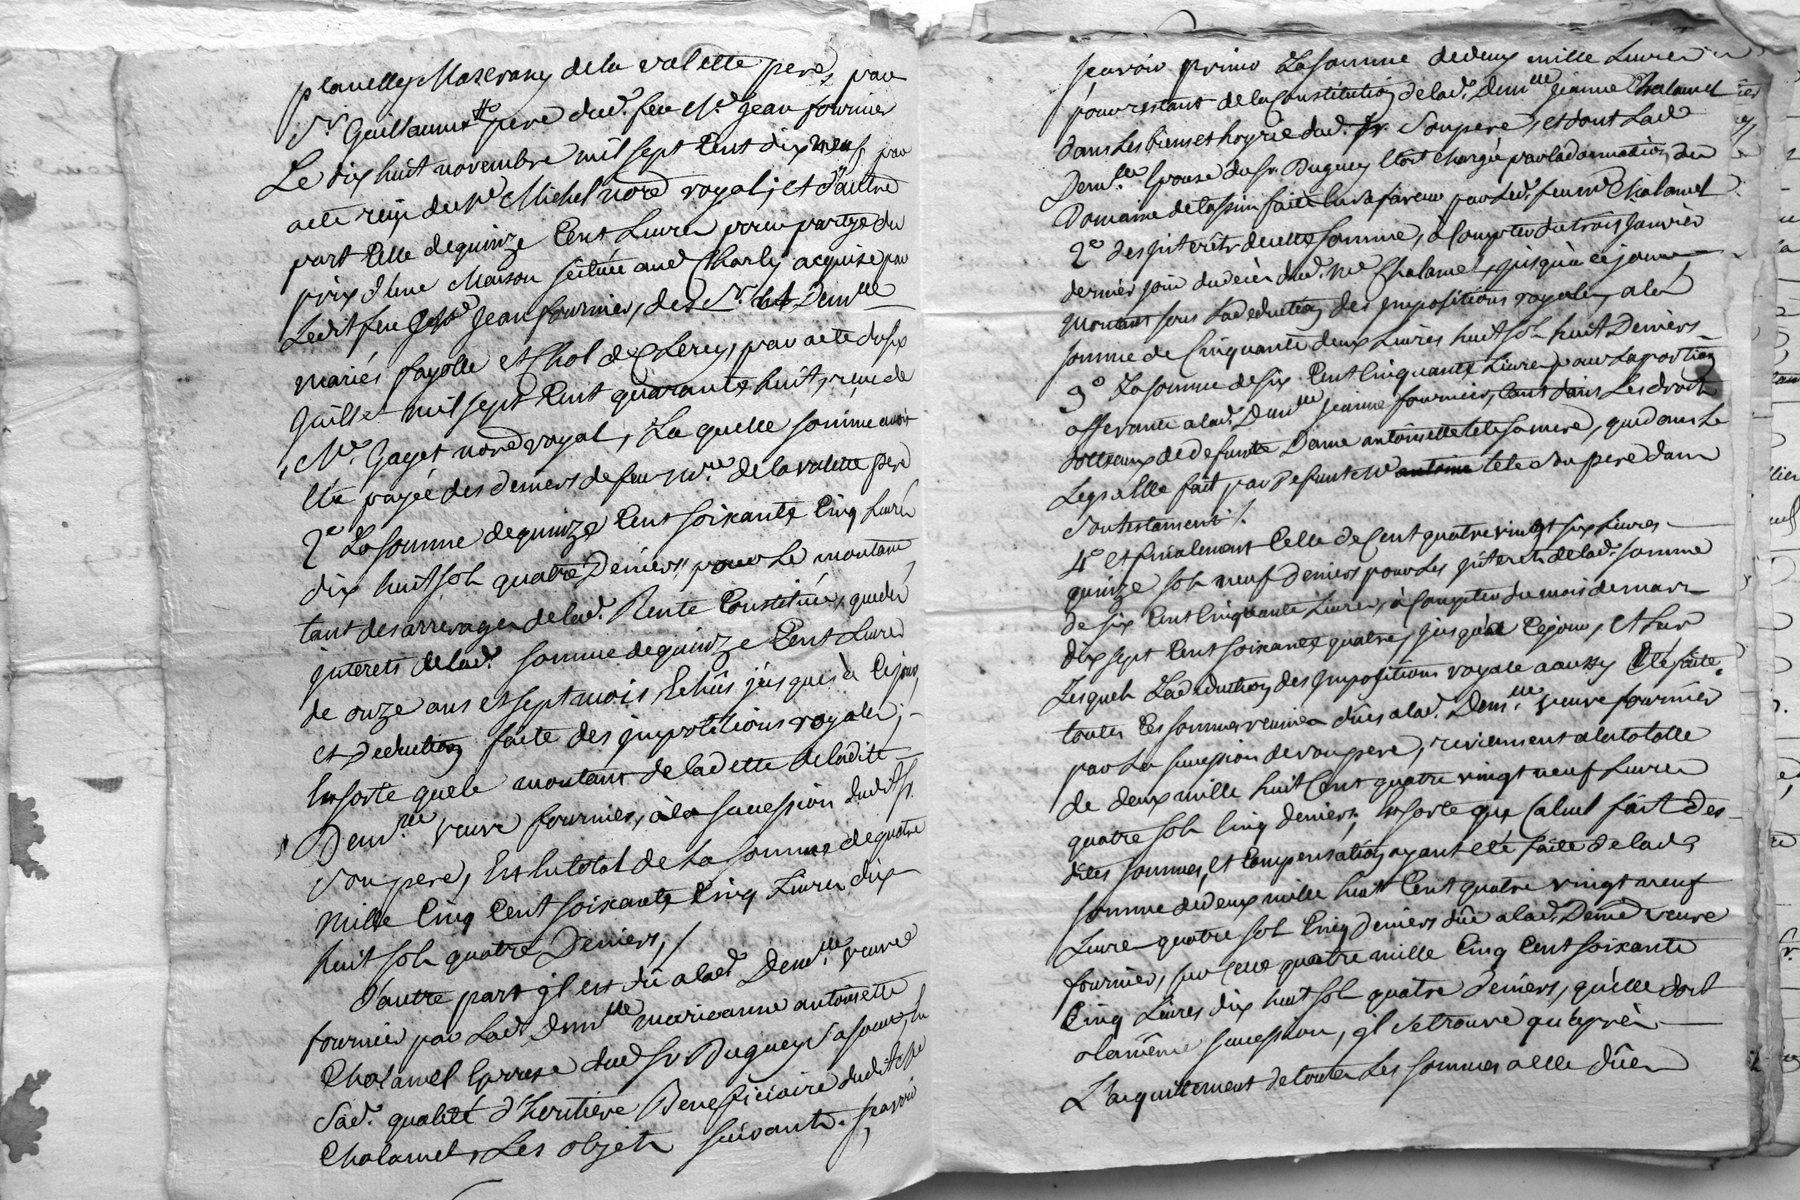 planelly Mazerany de la valette pere, par
Sr. Guillaume pere dud. feu Me. Jean fournier
Le dix huit novembre mil sept Cent dix neuf par
acte reçu de Me. Michel nore. royal; et d'autre
part Celle de quinze Cent Livres pour partye du
prix d'une Maison scituée aud. Charly acquise par
Ledit feu Jean fournier, des Sr. et Demlle
mariés fayolle et Chol de Clerey, par acte du six
Juillet mil sept Cent quarante huit, reçu de
Me. Gayet nore. royal, La quelle somme avoit
Eté payée des deniers de feu Mre. de la valette pere
2e. La somme de quinze Cent soixante Cinq Livres
dix huit sols quatre Deniers pour Le montant
tant des arrerages de lad. Rente Constituée, que des
jnterets de lad. somme de quinze Cent Livres
de onze ans et sept mois Echûs jusques à Ce jour,
et Deduction faite des jmpositions royales;
En sorte que le montant de la dette de ladite
Demlle veuve fournier, à la succession dudit Sr.
Son pere, Est au total de La somme de quatre
mille Cinq Cent soixante Cinq Livres dix
huit sols quatre Deniers, /
D'autre part jl est dû a lad. Demlle. veuve
fournier par Lad. Demlle marieanne antoinette
Chalamel Epouse dud. Sr. Duguey sa soeur, En
Sad. qualité d'heritiere Beneficiaire dudit feu
Chalamel, Les objets suivants. sçavoir
sçavoir primo La somme de deux mille Livres
pour restant de la Constitution de lad. Demlle Jeanne Chalamel
dans Les biens et hoyrie dud. Sr. Son pere, et dont Lad.
Demlle. Epouse du Sr. Duguey Etoit chargée par la donnation du
Domaine de tassin faite En sa faveur par Led. feu Me. Chalamel
2o. des jnterêts de cette somme, à Compter du trois Janvier
dernier jour du décès dud. Me. Chalamel, jusqu'à ce jour
montant sous La deduction des jmpositions royales, a la
somme de Cinquante deux Livres huit sols huit Deniers
3o. La somme de six Cent Cinquante Livres pour La portion
afferante a lad. Demlle jeanne fournier, tant dans Les droits
dottaux de defunte Dame antoinette tete sa mere, que dans Le
Legs a Elle fait par Defunt Me antoine tete son pere dans
Son testament /.
4o. et finalement Celle de Cent quatre vingt six Livres
quinze sols neuf deniers pour Les jnterets de lad. somme
de six Cent Cinquante Livres, à Compter du mois de mars
dix sept Cent soixante quatre, jusqu'a Ce jour, et sur
Lesquels La deduction des jmpositions royale a aussy Eté faite.
toutes Ces sommes reunies dûes a lad. Demlle. veuve fournier
par La succession de son pere, reviennent a la totalle
de deux mille huit Cent quatre vingt neuf Livres
quatre sols Cinq deniers, En sorte que Calcul fait des
dites sommes, et Compensation ayant Eté faite de lad.
somme de deux mille huit Cent quatre vingt neuf
Livres quatre sols Cinq deniers dûe a lad. Demlle veuve
fournier, sur Celle quatre mille Cinq Cent soixante
Cinq Livres dix huit sols quatre deniers, qu'elle doit
a la même succession, jl se trouve qu'après
L'acquittement de toutes Les sommes a Elle dûes